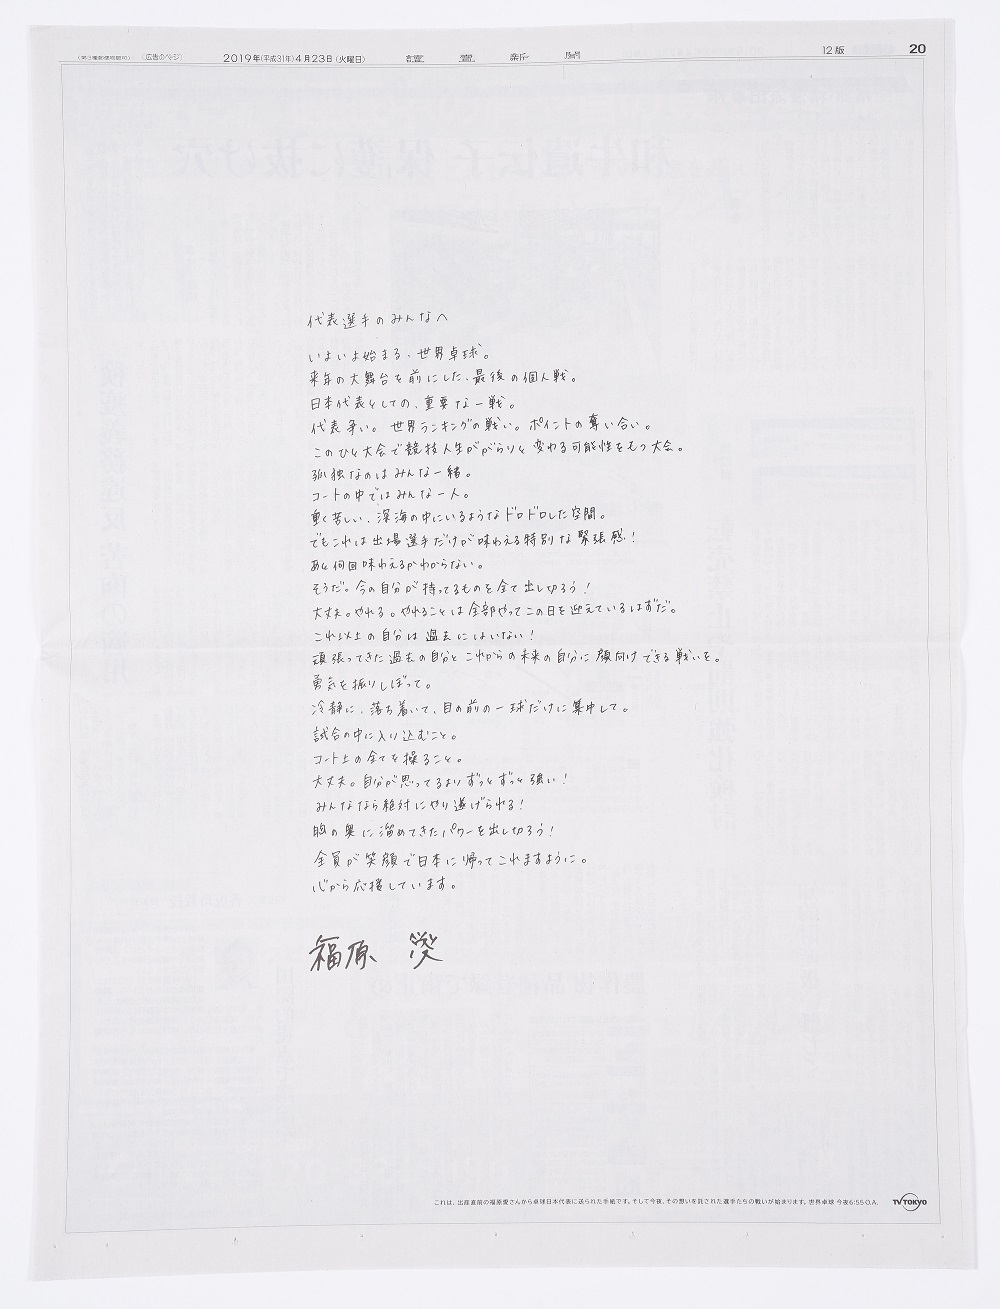 （第3種郵便物認可） （広告のページ） 2019年（平成31年）4月23日（火曜日） 讀賣新聞 12版 20
代表選手のみんなへ
いよいよ始まる、世界卓球。
来年の大舞台を前にした、最後の個人戦。
日本代表としての、重要な一戦。
代表争い。世界ランキングの戦い。ポイントの奪い合い。
このひと大会で競技人生ががらりと変わる可能性をもつ大会。
孤独なのはみんな一緒。
コートの中ではみんな一人。
重く苦しい、深海の中にいるようなドロドロした空間。
でもこれは出場選手だけが味わえる特別な緊張感！
あと何回味わえるかわからない。
そうだ。今の自分が持ってるものを全て出し切ろう！
大丈夫。やれる。やれることは全部やってこの日を迎えているはずだ。
これ以上の自分は過去にはいない！
頑張ってきた過去の自分とこれからの未来の自分に顔向けできる戦いを。
勇気を振りしぼって。
冷静に、落ち着いて、目の前の一球だけに集中して。
試合の中に入り込むこと。
コート上の全てを操ること。
大丈夫。自分が思ってるよりずっとずっと強い！
みんななら絶対にやり遂げられる！
胸の奥に溜めてきたパワーを出し切ろう！
全員が笑顔で日本に帰ってこれますように。
心から応援しています。
福原 愛
これは、出産直前の福原愛さんから卓球日本代表に送られた手紙です。そして今夜、その想いを託された選手たちの戦いが始まります。世界卓球 今夜6:55 O.A. TV TOKYO